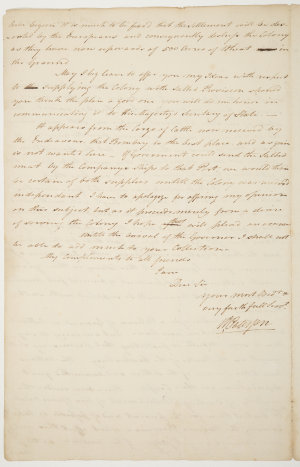 been begun it is much to be feared that the settlement will be de-
serted by the Europeans and consequently distress the Colony
as they have now upwards of 500 Acres of Wheat in
the Ground
May I beg leave to offer you my Ideas with respect
to supplying the Colony with Salted Provision should
you think the plan a good one you will do me honor in
communicating it to His Majesty's Secretary of State —
It appears from the Cargo of Cattle now received by
the Endeavour that Bombay is the best place and as grain
is not wanted here — if Government could send the Salted
meat by the Companys Ships to that Port we would then
be certain of both supplies untill the Colony was
independent I have to apologize for offering my opinion
on this subject but as it proceeds merely from a desire
of serving the Colony I hope that will plead an excuse
Untill the arrival of the Governor I shall not
be able to add much to your Collection —
My Compliments to all friends
I am
Dear Sir
Your most Obedt &
very faithfull Servt.
Wm Paterson